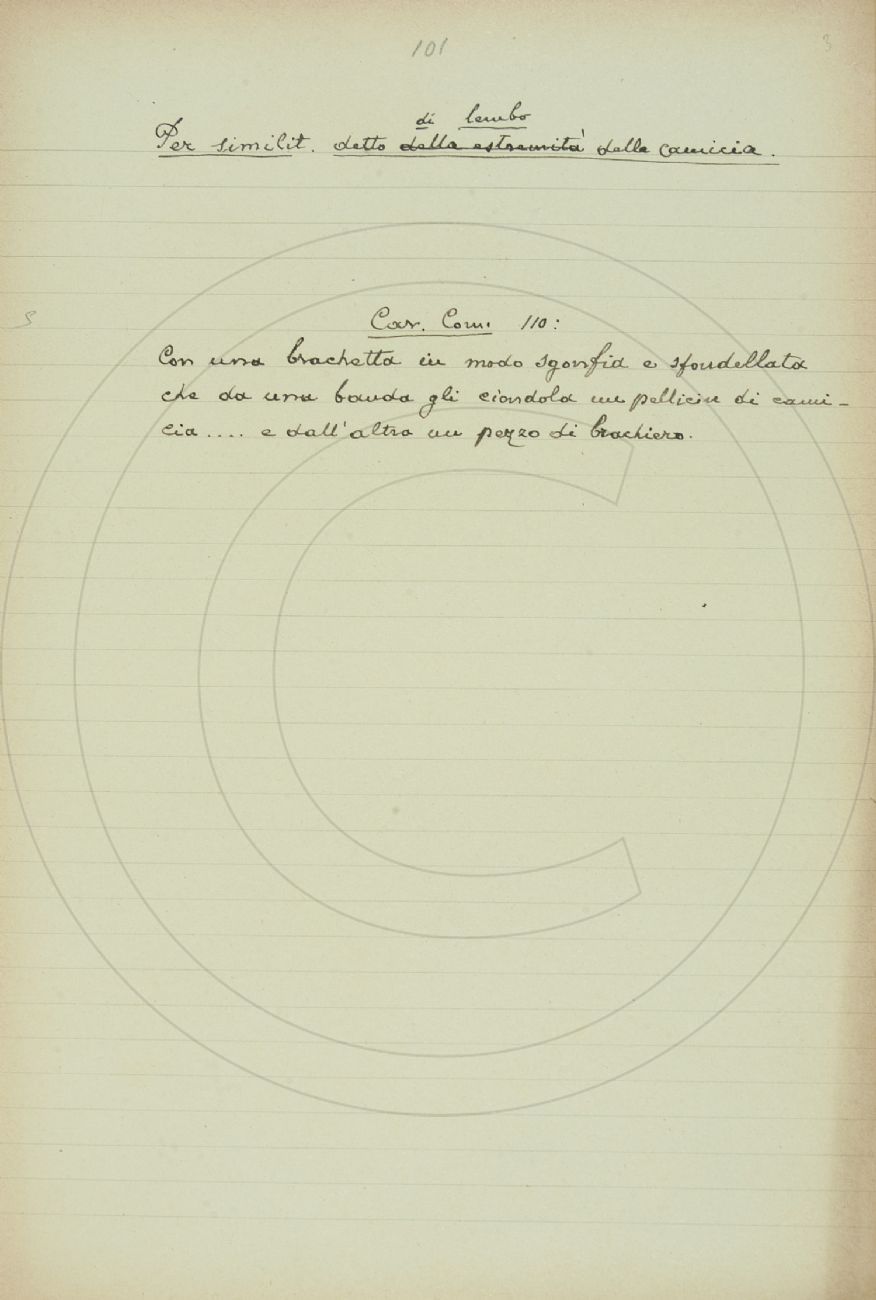 101
3
di lembo
Per similit. detto della estremità della camicia.
Car. Com. 110:
Con una brachetta in modo sgonfia e sfondellata
che da una banda gli ciondola un pellicin di cami-
cia.... e dall'altra un pezzo di brachiero.